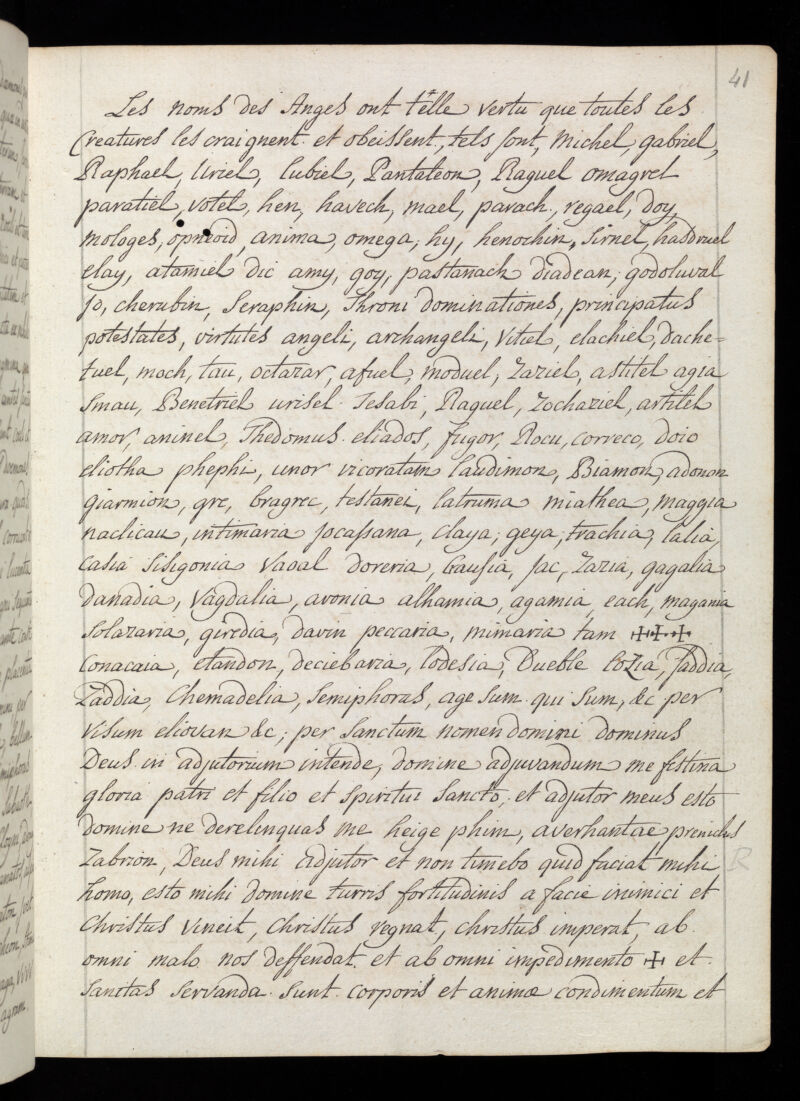 41
Les noms des Anges ont telle vertu que toutes les
Creatures les craignent et obeissent, tels sont, Michel, gabriel,
Raphael, Uriel, lubiel, Pantateon, Raguel omagret
paratiel, votel, hen, havech, mael, parach, regael, doy,
mologes, opneoid, anima, omega, hy, henochin, Sirnel, hasdruel
elay, atamiel dic amy, goy, pastanach diadean, godoluval
jo, cherubin, Seraphin, Throni dominationes, principatus
potestates, virtutes angeli, archangeli, Vitiel, elachiel, Dache=
tuel, moch, tau, octazar, afuel, moduel, Zaziel, astitel agia
Smau, Benetriel urisel Tesabi, Raguel, Zochaziel, artitel
amor, aninel, Thedomus eliados, fugor, Rocu, correco, doio
eliotha phephi, unor vicoratam laudimon, Biamon, adonon
giarmion, gre, bragrec, testanei, latruma miathea, maggia
naclicau, intimaria jocassana, Claya, geya, trachia, lalia,
Casia Sisigonia Vaoal doreria, Causia, jac, Zazia, gagalia
danadia, Vagdalia, avonia alhamia, agamia, each, magania
Solazaria, giredia, davin peccaria, mimaria tam ✠✠✠
Conacaia, etandon, deciebaria, lodesia, Dueble lozia, Jaddia,
Zaddia, Chemadelia, Semiphoras, age Sum qui Sum, &c per
Visum eliovan &c; per Sanctum nomen domini dominus
Deus in adjutorium intende, domine adjuvandum me festina
gloria patri et filio et Spiritui Sancto, et adjutor meus esto
domine ne derelinquas me heige phim, averhantae prenidus
Zabrion, Deus mihi adjutor et non timebo quid faciat mihi
homo, esto mihi domine turris fortitudinis a facie inimici et
Christus Vincit, Christus regnat, christus imperat, ab
omni malo nos deffendat et ab omni impedimento ✠ et
Sanitas Servanda Sunt Corporis et animæ condimentum et